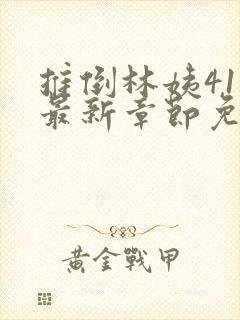 推倒林姨41
最新章節免
黄金戰甲